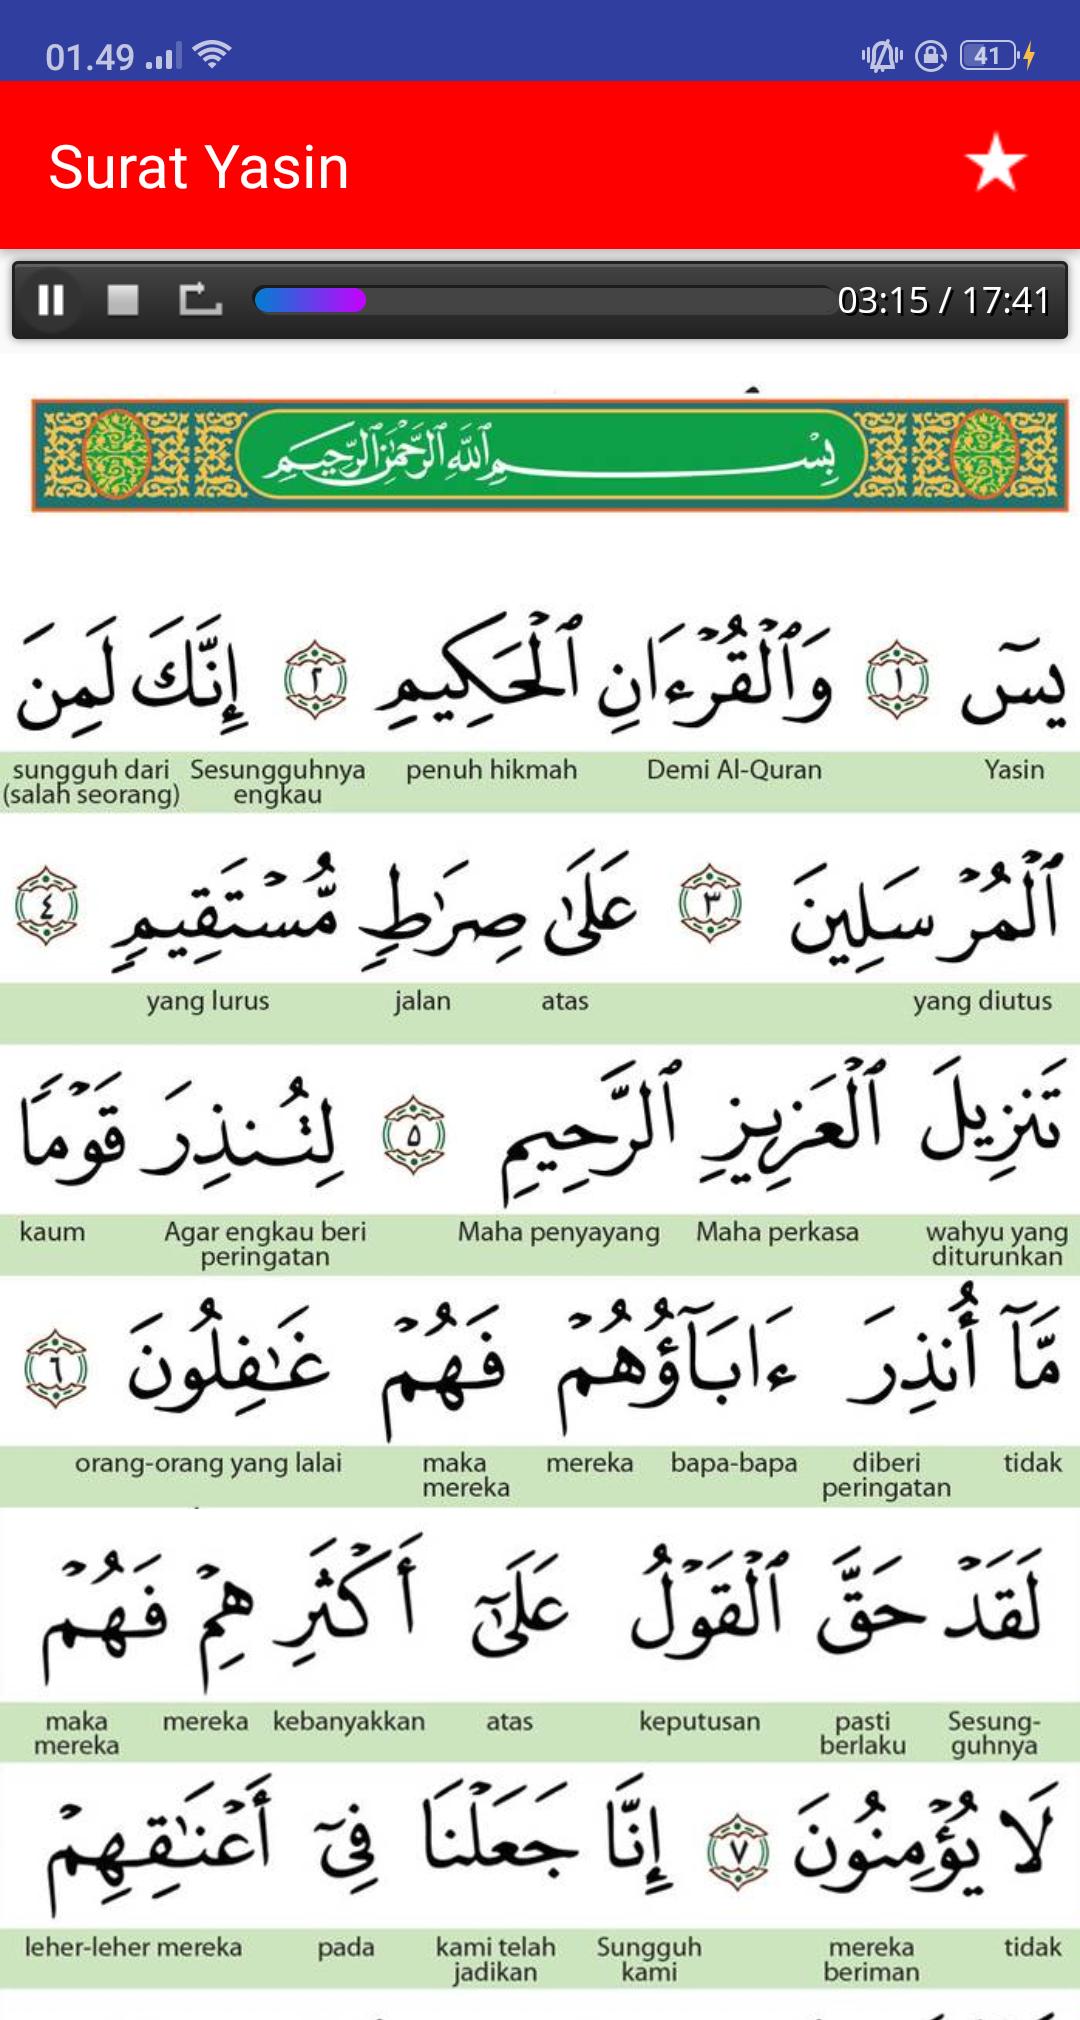 01.49
41
Surat Yasin
03:15 / 17:41
بِسْمِ ٱللَّهِ ٱلرَّحْمَٰنِ ٱلرَّحِيمِ
يسٓ ١ وَٱلْقُرْءَانِ ٱلْحَكِيمِ ٢ إِنَّكَ لَمِنَ
Yasin Demi Al-Quran penuh hikmah Sesungguhnya engkau sungguh dari (salah seorang)
ٱلْمُرْسَلِينَ ٣ عَلَىٰ صِرَٰطٍ مُّسْتَقِيمٍ ٤
yang diutus atas jalan yang lurus
تَنزِيلَ ٱلْعَزِيزِ ٱلرَّحِيمِ ٥ لِتُنذِرَ قَوْمًا
wahyu yang diturunkan Maha perkasa Maha penyayang Agar engkau beri peringatan kaum
مَّآ أُنذِرَ ءَابَآؤُهُمْ فَهُمْ غَٰفِلُونَ ٦
tidak diberi peringatan bapa-bapa mereka maka mereka orang-orang yang lalai
لَقَدْ حَقَّ ٱلْقَوْلُ عَلَىٰٓ أَكْثَرِهِمْ فَهُمْ
Sesung-guhnya pasti berlaku keputusan atas kebanyakkan mereka maka mereka
لَا يُؤْمِنُونَ ٧ إِنَّا جَعَلْنَا فِىٓ أَعْنَٰقِهِمْ
tidak mereka beriman Sungguh kami kami telah jadikan pada leher-leher mereka